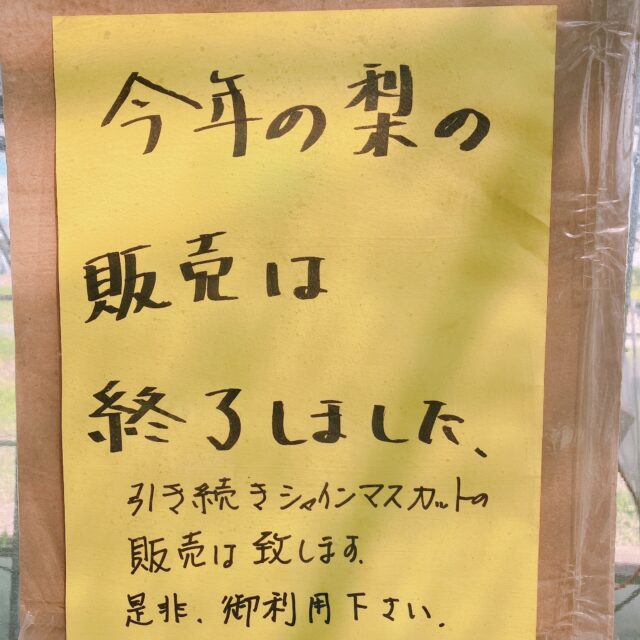 今年の梨の
販売は
終了しました、
引き続きシャインマスカットの
販売は致します。
是非、御利用下さい。